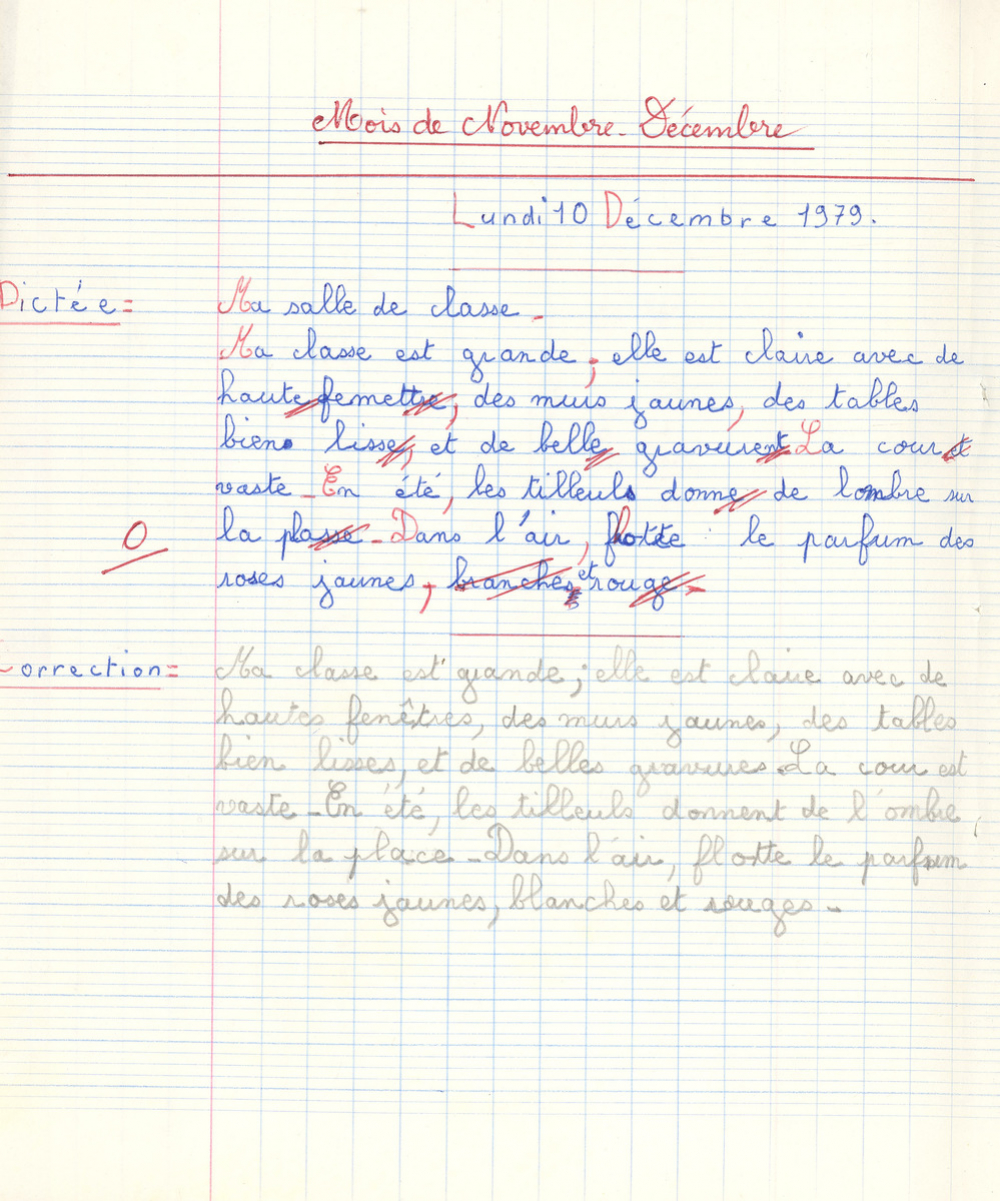 Mois de Novembre - Décembre
Lundi 10 Décembre 1979.
Dictée = Ma salle de classe -
Ma classe est grande ; elle est claire avec de
haute femettre, des murs jaunes, des tables
biens lisse, et de belle gravurent La cour et
vaste - En été, les tilleuls donne de lombre sur
0 la plasse - Dans l'air, flotte le parfum des
roses jaunes, branches et rouge -
Correction = Ma classe est grande ; elle est claire avec de
hautes fenêtres, des murs jaunes, des tables
bien lisses, et de belles gravures. La cour est
vaste - En été, les tilleuls donnent de l'ombre,
sur la place - Dans l'air, flotte le parfum
des roses jaunes, blanches et rouges -